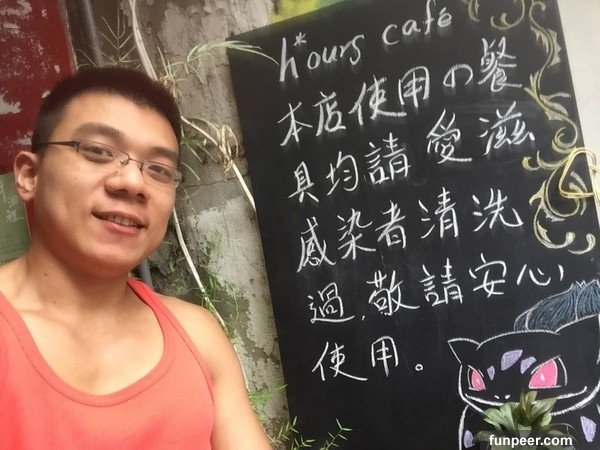 h*ours café
本店使用の餐
具均請愛滋
感染者清洗
過,敬請安心
使用。
funpeer.com